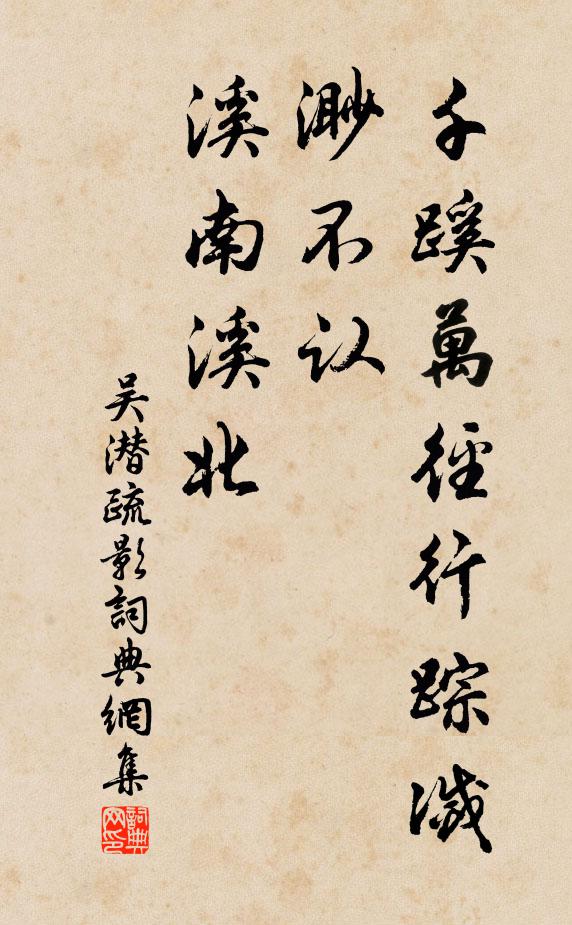 千蹊萬徑行踪滅
渺不认
溪南溪北
吴潜疏影詞典網集
詞典网印